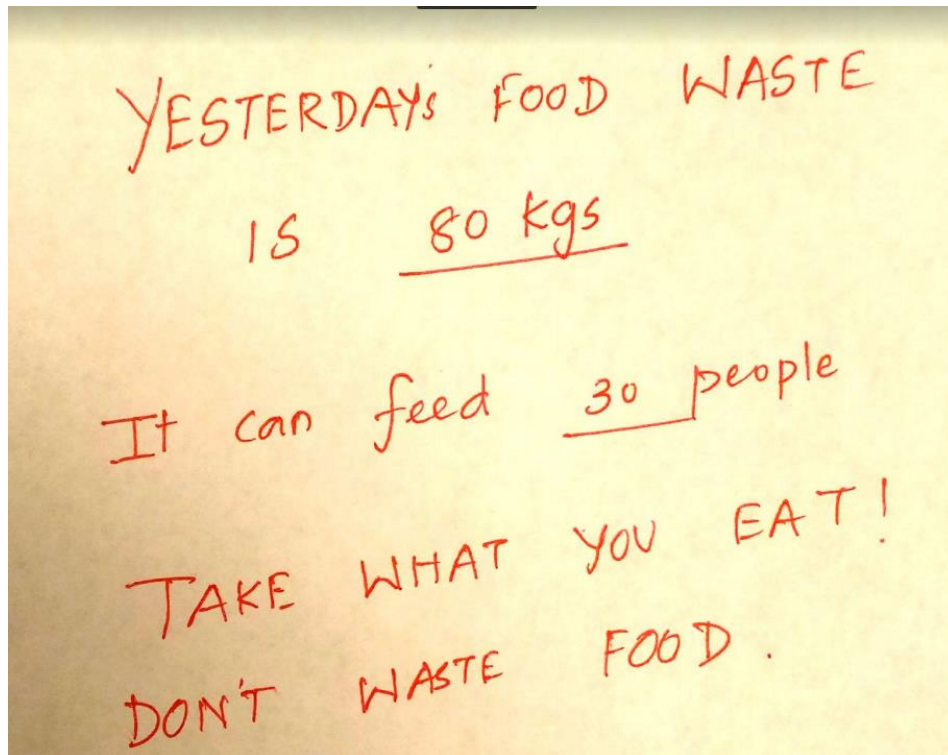 YESTERDAY'S FOOD WASTE
IS 80 kgs
It can feed 30 people
TAKE WHAT YOU EAT!
DON'T WASTE FOOD.